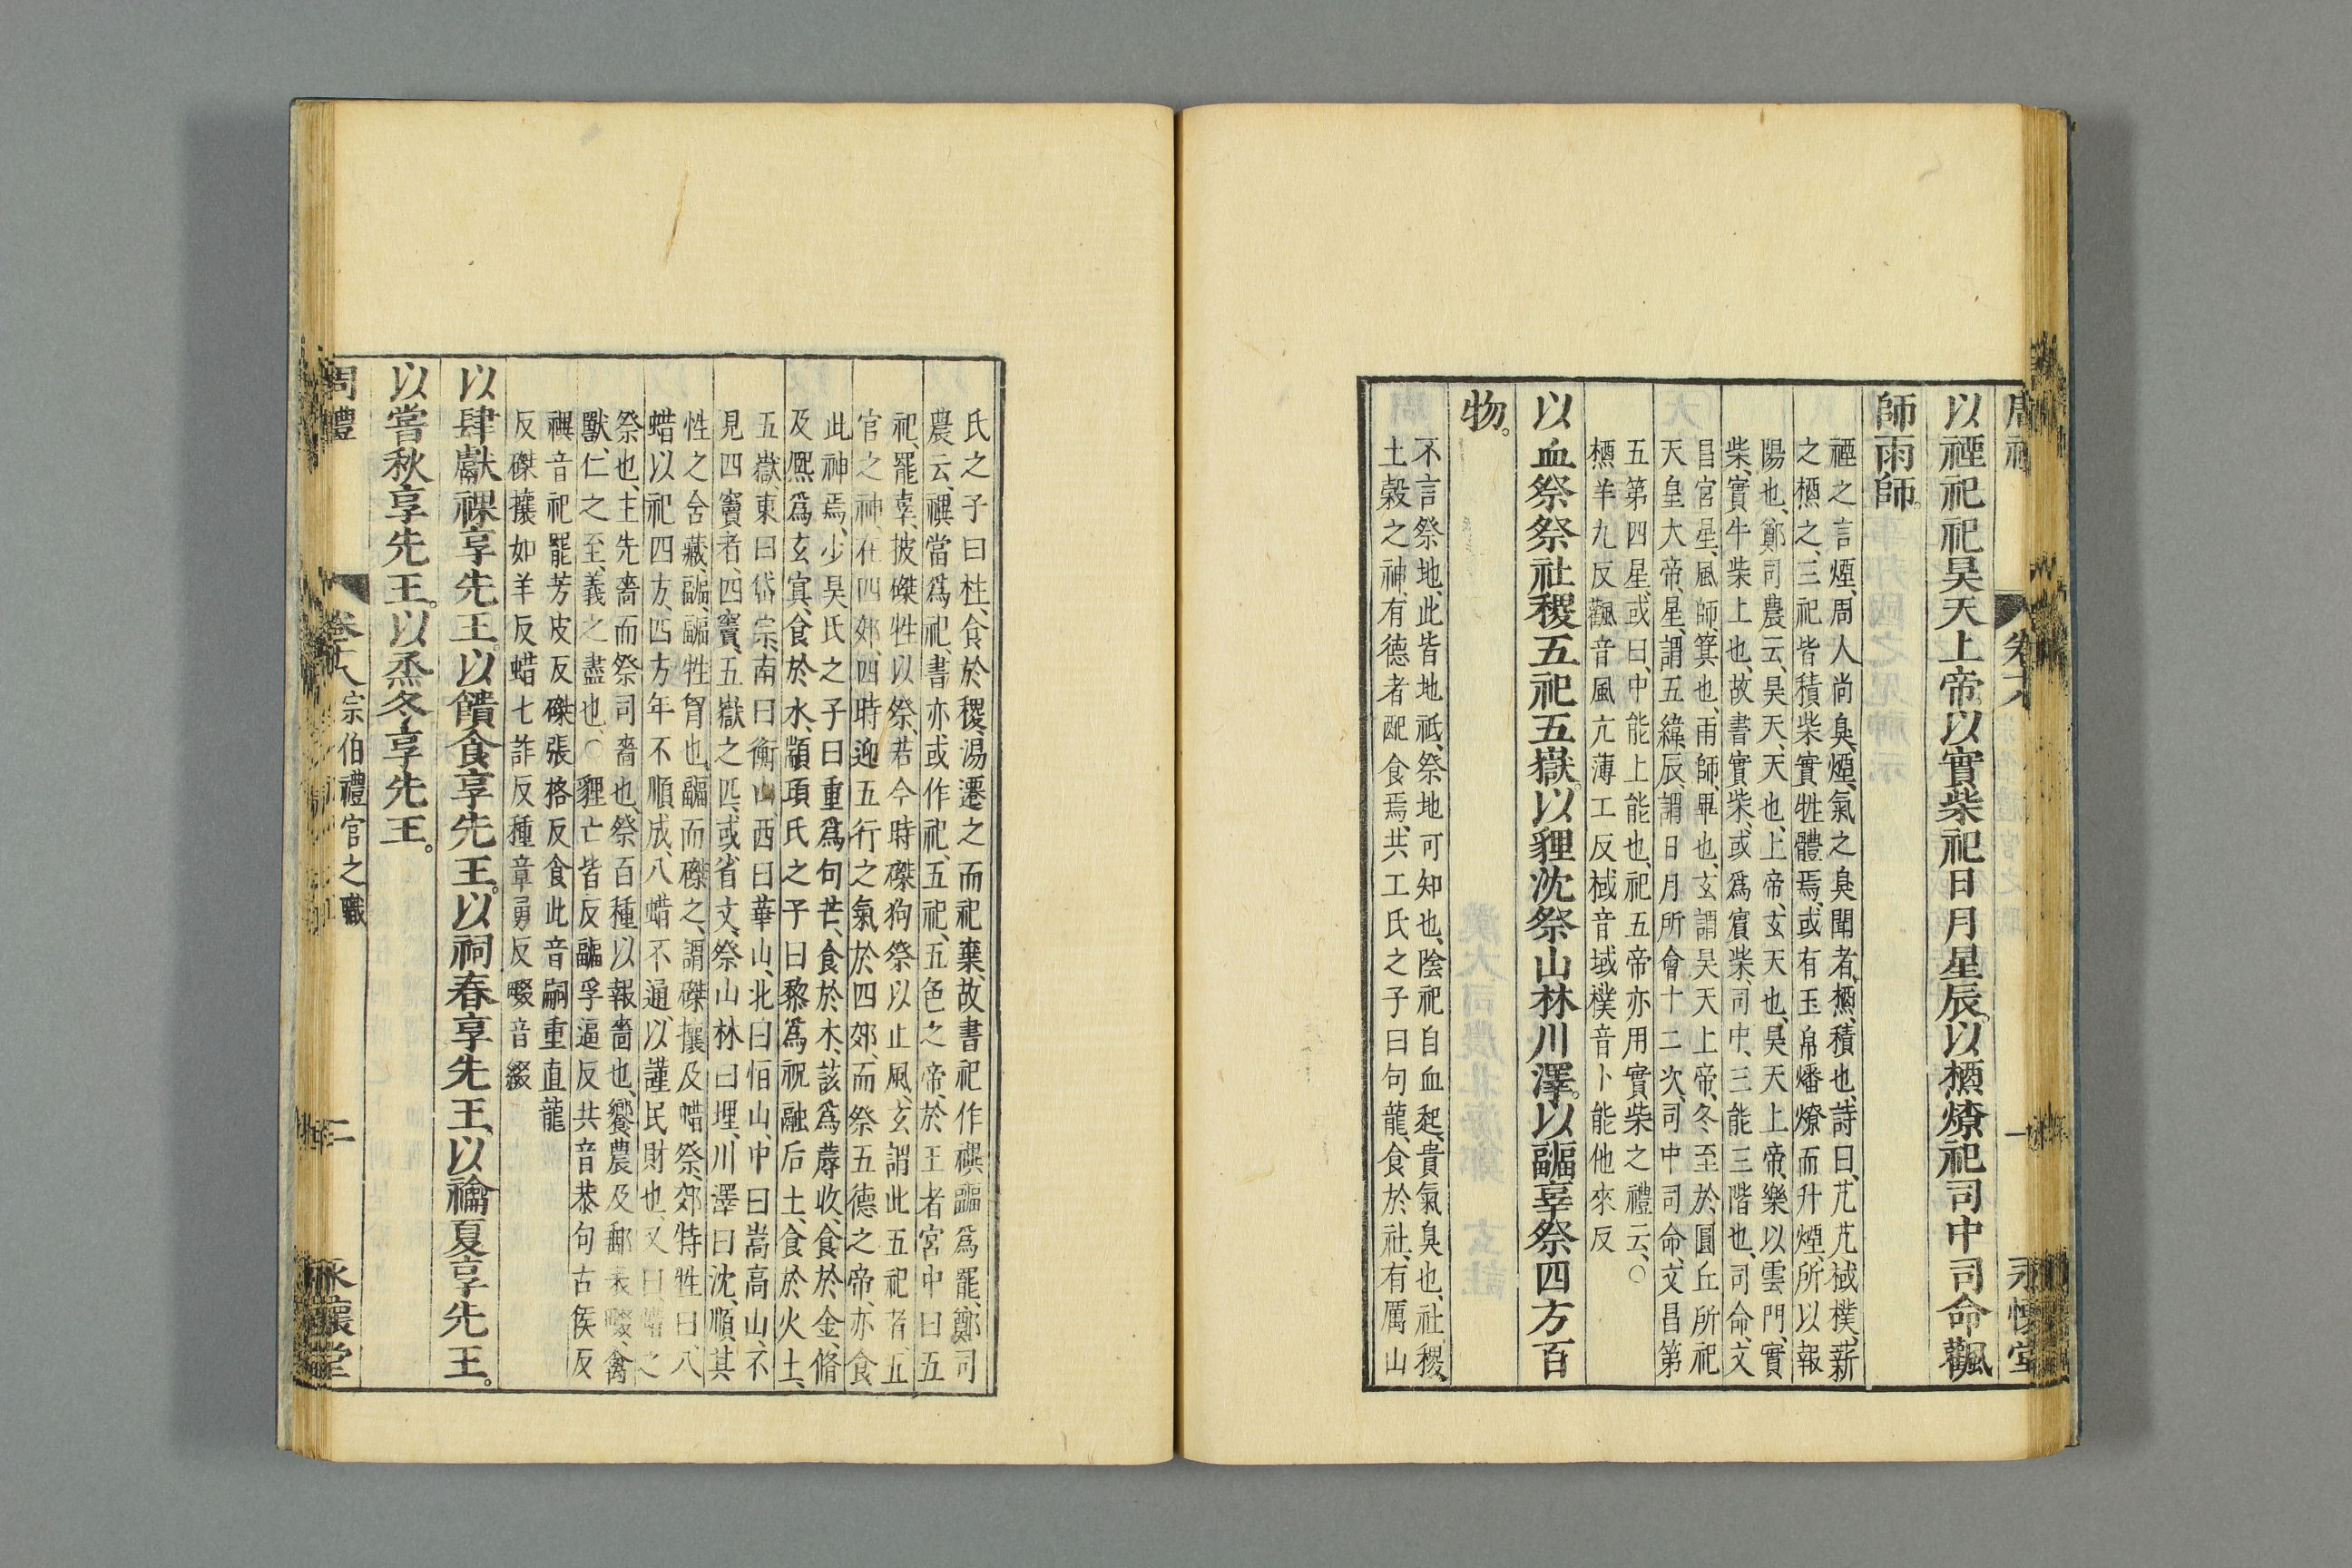 以禋祀祀昊天上帝以實柴祀日月星辰。以槱燎祀司中司命飌
師雨師。
禋之言煙、周人尚臭、煙、氣之臭聞者、槱、積也、詩曰、芃芃棫樸、薪
之槱之、三祀皆積柴實牲體焉、或有玉帛燔燎而升煙、所以報
陽也、鄭司農云、昊天、天也、上帝、玄天也、昊天上帝、樂以雲門、實
柴、實牛柴上也、故書實柴、或爲賓柴、司中、三能三階也、司命、文
昌宮星、風師、箕也、雨師、畢也、玄謂昊天上帝、冬至於圜丘所祀
天皇大帝、星、謂五緯、辰、謂日月所會十二次、司中司命、文昌第
五第四星、或曰、中能上能也、祀五帝亦用實柴之禮云、○
槱羊九反飌音風亢薄工反棫音域樸音卜能他來反
以血祭祭社稷五祀五嶽。以貍沈祭山林川澤。以疈辜祭四方百
物。
不言祭地、此皆地祇、祭地可知也、陰祀自血起、貴氣臭也、社稷、
土穀之神、有德者配食焉、共工氏之子曰句龍、食於社、有厲山
氏之子曰柱、食於稷、湯遷之而祀棄、故書祀作禩疈爲罷、鄭司
農云、禩當爲祀、書亦或作祀、五祀、五色之帝、於王者宮中曰五
祀、罷辜、披磔牲以祭、若今時磔狗祭以止風、玄謂此五祀者、五
官之神、在四郊、四時迎五行之氣於四郊、而祭五德之帝、亦食
此神焉、少昊氏之子曰重爲句芒、食於木、該爲蓐收、食於金、脩
及熙爲玄冥、食於水、顓頊氏之子曰黎爲祝融后土、食於火土、
五嶽、東曰岱宗、南曰衡山、西曰華山、北曰恒山、中曰嵩高山、不
見四竇者、四竇、五嶽之匹、或省文、祭山林曰埋、川澤曰沈、順其
性之含藏、疈、疈牲胷也、疈而磔之、謂磔攘及蜡祭、郊特牲曰、八
蜡以祀四方、四方年不順成、八蜡不通、以謹民財也、又曰、蜡之
祭也、主先嗇而祭司嗇也、祭百種以報嗇也、饗農及郵表畷、禽
獸、仁之至、義之盡也、○貍亡皆反疈孚逼反共音恭句古侯反
禩音祀罷芳皮反磔張格反食此音嗣重直龍
反磔攘如羊反蜡七詐反種章勇反畷音綴
以肆獻祼享先王。以饋食享先王。以祠春享先王、以禴夏享先王。
以嘗秋享先王。以烝冬享先王。
周禮 宗伯禮官之職 二 永懷堂